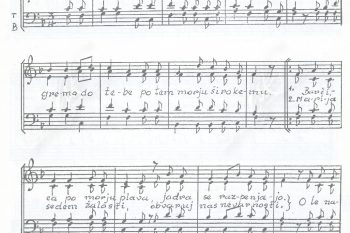 T
B
gremado te-be po tam morju širokemu.
1. Barči-
2. Marija
ca po morju plava, jadra se razpenja-jo.
sedem žalosti, obvaruj nas nevarnosti.} O le na-